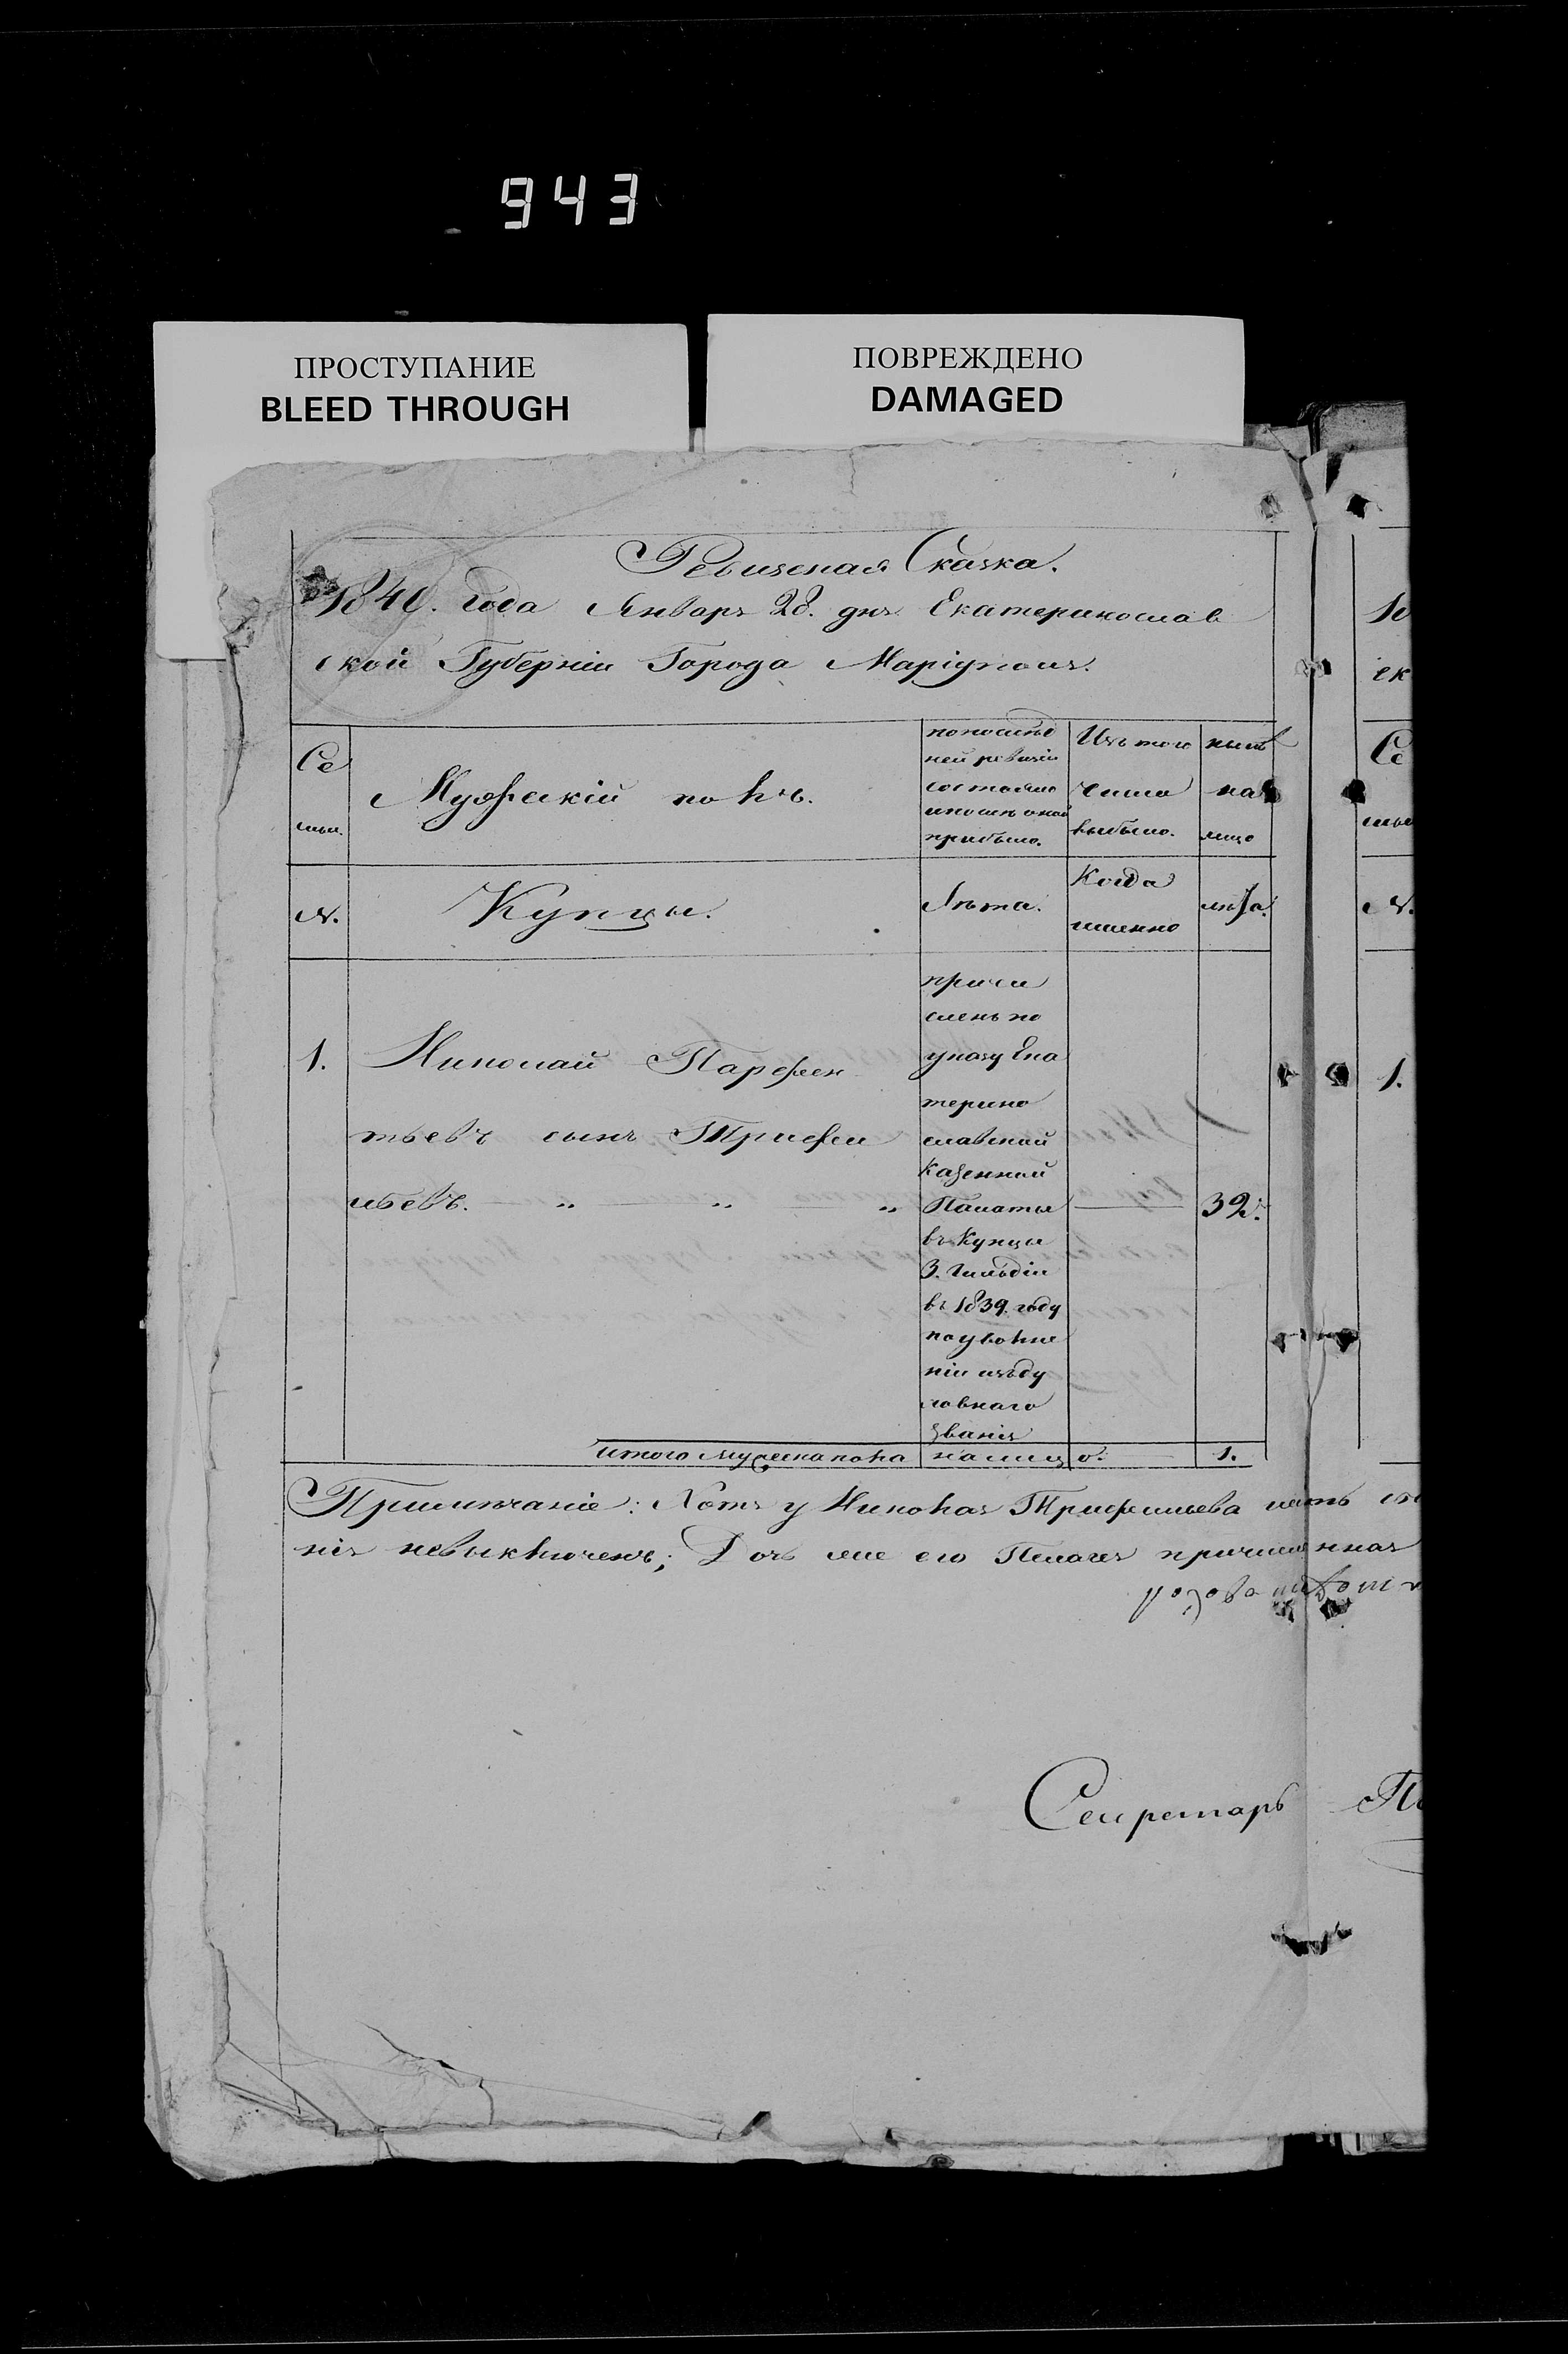 943
ПРОСТУПАНИЕ
BLEED THROUGH
ПОВРЕЖДЕНО
DAMAGED
Ревизская Сказка.
1840. года Января 28. дня Екатеринослав
ской Губерніи Города Маріуполя.
Се
мьи.
Мужескій полъ.
по послѣд
ней ревизіи
состояло
и послѣ оной
прибыло.
Изъ того
числа
выбыло.
нынѣ
на
лицо
N.
Купцы.
Лѣта.
Когда
именно
лѣта.
1.
Николай Парфен
тьевъ сынъ Трифи
льевъ.
причи
сленъ по
указу Ека
терино
славской
Казенной
Палаты
въ Купцы
3. гильдіи
въ 1839. году
по уволне
ніи изъ ду
ховнаго
званія
32.
итого мужеска пола на лицо. 1.
Примѣчаніе: Хотя у Николая Трифильева есть
нія невыключенъ; Дочь же его Пелагея причисленная
Секретарь
1.
N.